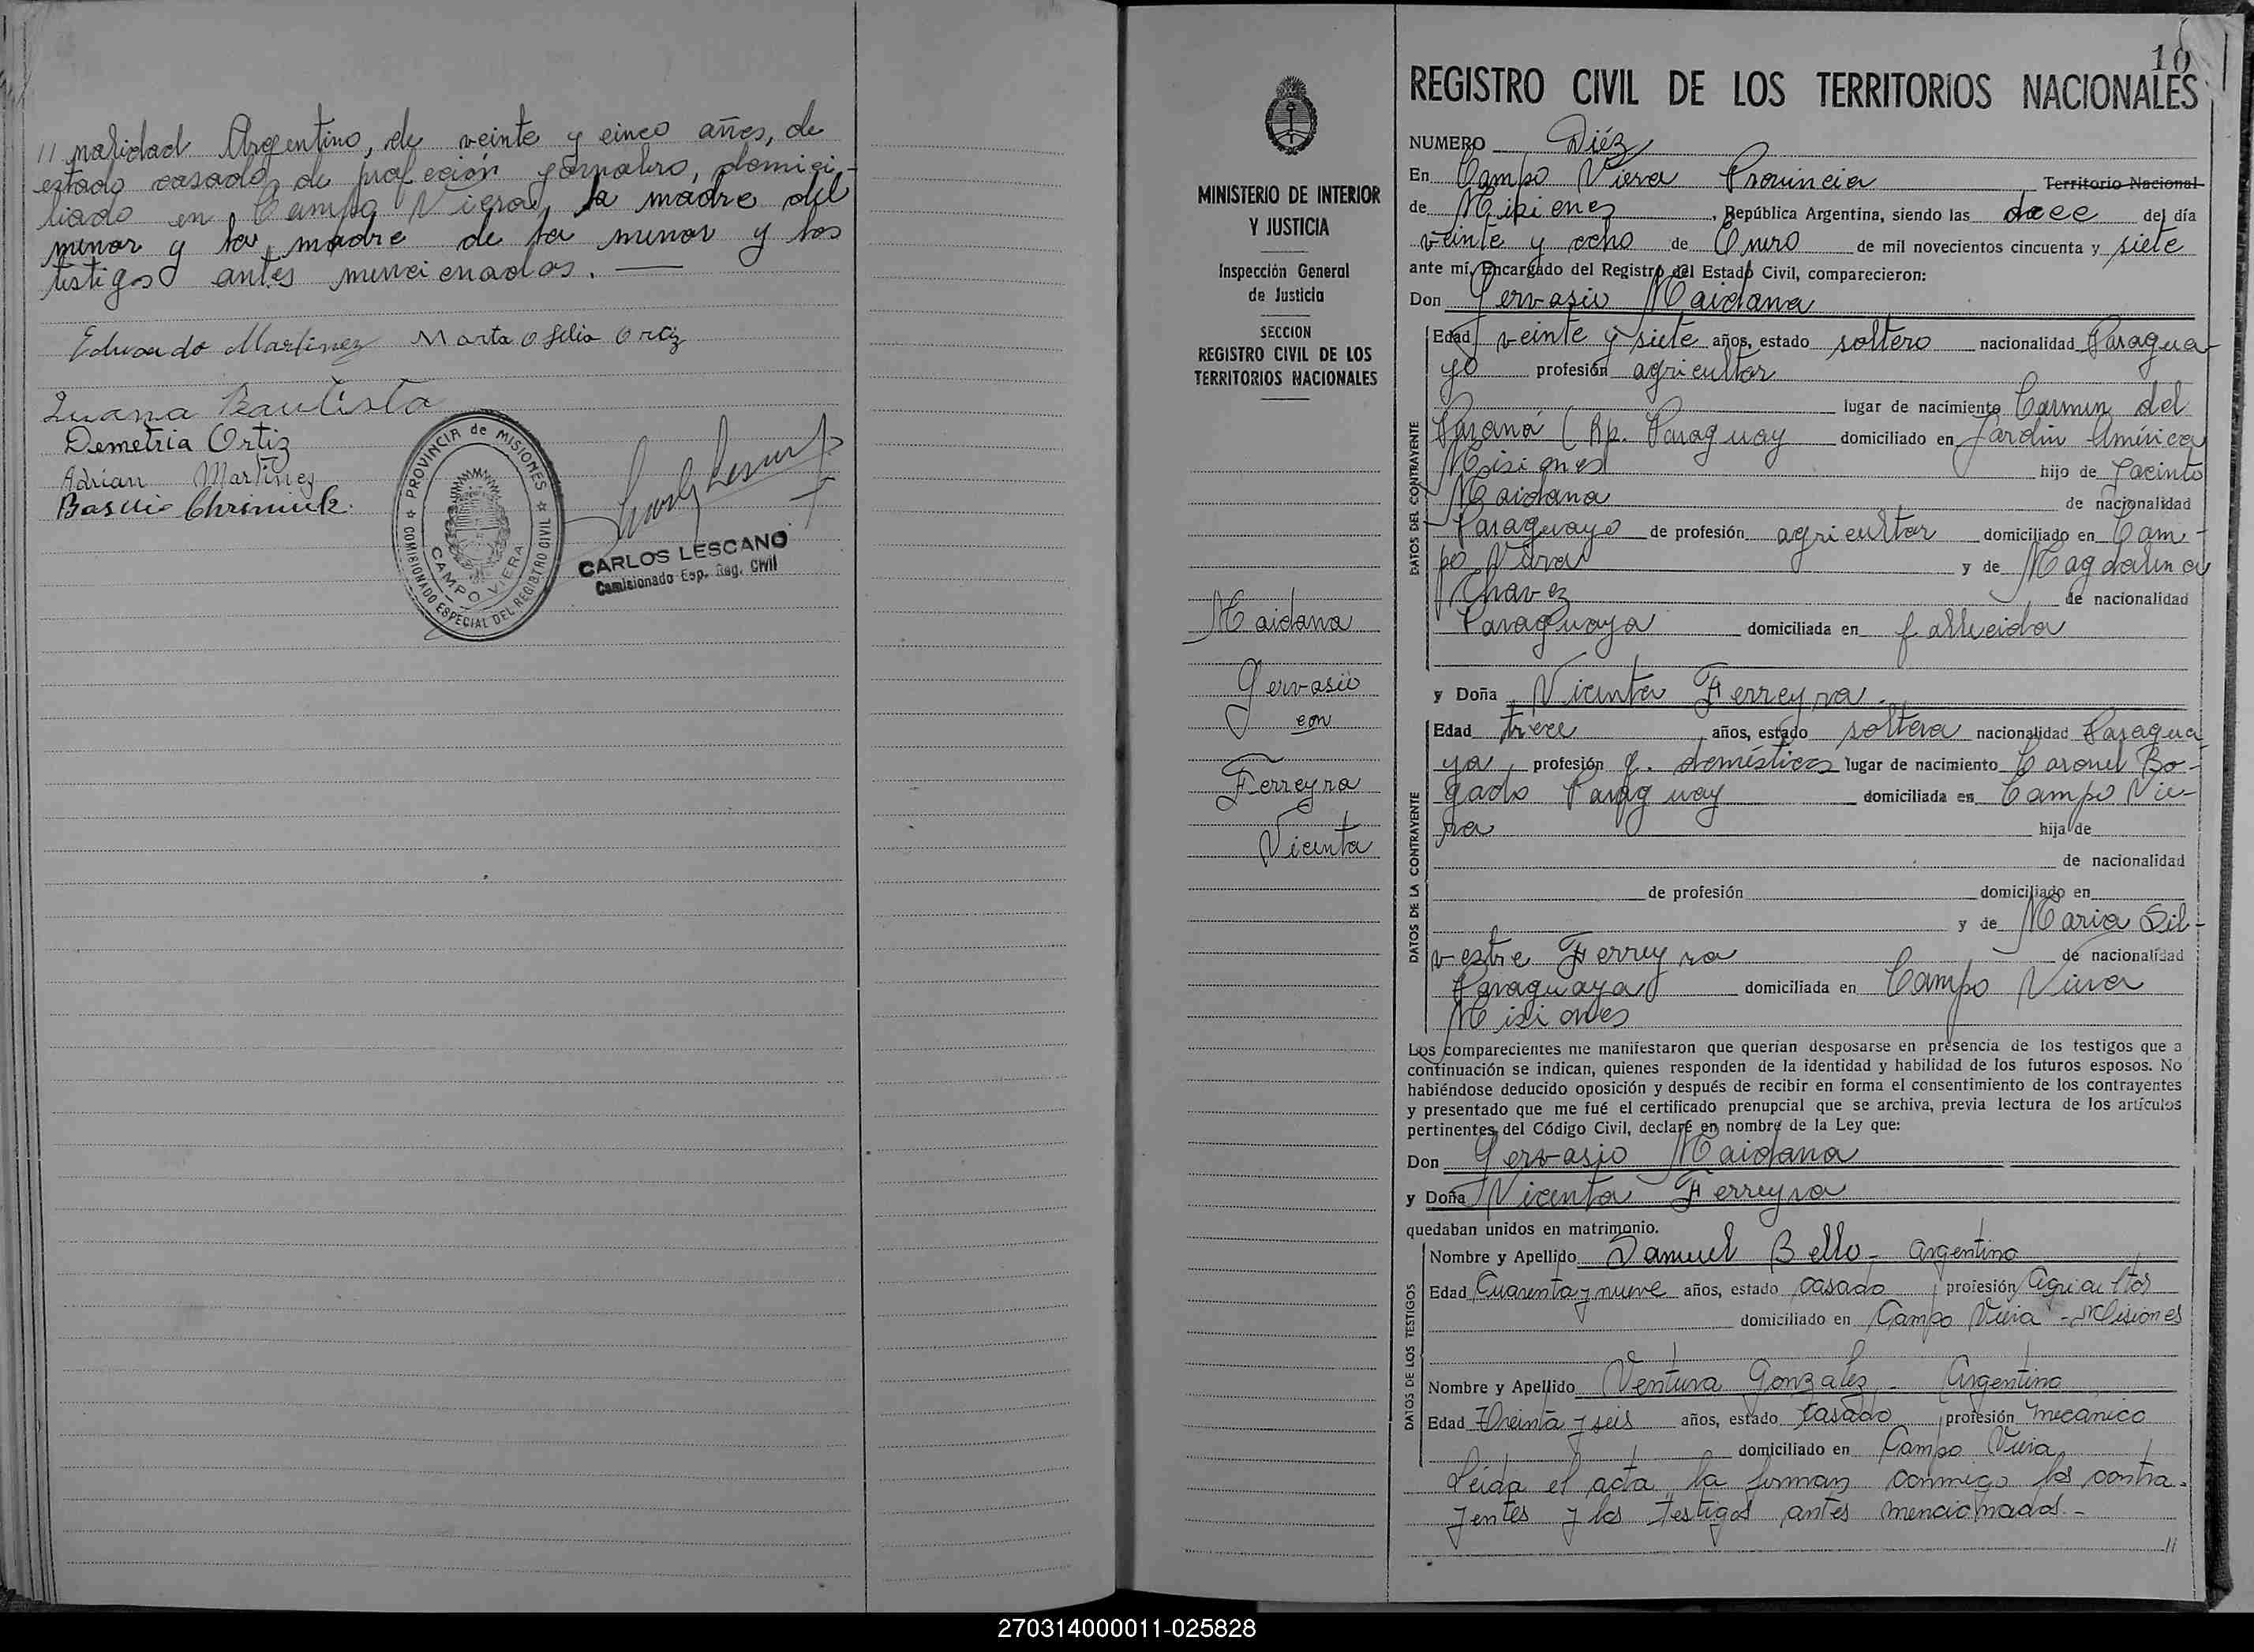 // nalidad Argentino, de veinte y cinco años, de
estado casado, de profeción jornalero, domici-
liado en Campo Viera, la madre del
menor y la madre de la menor y los
testigos antes mencionados. —
Eduardo Martinez Marta Ofelia Ortiz
Juana Bautista
Demetria Ortiz
Adrian Martinez
Basilio Chriniuk
PROVINCIA de MISIONES
COMISIONADO ESPECIAL DEL REGISTRO CIVIL
CAMPO VIERA
CARLOS LESCANO
Comisionado Esp. Reg. Civil
10
MINISTERIO DE INTERIOR
Y JUSTICIA
Inspección General
de Justicia
SECCION
REGISTRO CIVIL DE LOS
TERRITORIOS NACIONALES
Maidana
Gervasio
con
Ferreyra
Vicenta
REGISTRO CIVIL DE LOS TERRITORIOS NACIONALES
NUMERO Diéz
En Campo Viera Provincia Territorio Nacional
de Misiones, República Argentina, siendo las doce del día
veinte y ocho de Enero de mil novecientos cincuenta y siete
ante mí, Encargado del Registro del Estado Civil, comparecieron:
Don Gervasio Maidana
DATOS DEL CONTRAYENTE
Edad veinte y siete años, estado soltero nacionalidad Paragua-
yo profesión agricultor
lugar de nacimiento Carmen del
Paraná (Rp. Paraguay domiciliado en Jardin América
Misiones hijo de Jacinto
Maidana de nacionalidad
Paraguayo de profesión agricultor domiciliado en Cam-
po Viera y de Magdalena
Chavez de nacionalidad
Paraguaya domiciliada en fallecida
y Doña Vicenta Ferreyra.
DATOS DE LA CONTRAYENTE
Edad trece años, estado soltera nacionalidad Paragua-
ya profesión q. domésticos lugar de nacimiento Coronel Bo-
gado Paraguay domiciliada en Campo Vie-
ra hija de
de nacionalidad
de profesión domiciliado en
y de Maria Sil-
vestre Ferreyra de nacionalidad
Paraguaya domiciliada en Campo Viera
Misiones
Los comparecientes me manifestaron que querían desposarse en presencia de los testigos que a
continuación se indican, quienes responden de la identidad y habilidad de los futuros esposos. No
habiéndose deducido oposición y después de recibir en forma el consentimiento de los contrayentes
y presentado que me fué el certificado prenupcial que se archiva, previa lectura de los artículos
pertinentes del Código Civil, declaré en nombre de la Ley que:
Don Gervasio Maidana
y Doña Vicenta Ferreyra
quedaban unidos en matrimonio.
DATOS DE LOS TESTIGOS
Nombre y Apellido Samuel Bello - argentino
Edad Cuarenta y nueve años, estado casado profesión Agricultor
domiciliado en Campo Viera - Misiones
Nombre y Apellido Ventura Gonzalez - Argentino
Edad Treinta y seis años, estado casado profesión mecanico
domiciliado en Campo Viera
Leida el acta la firman conmigo los contra-
yentes y los testigos antes mencionados. -
//
270314000011-025828